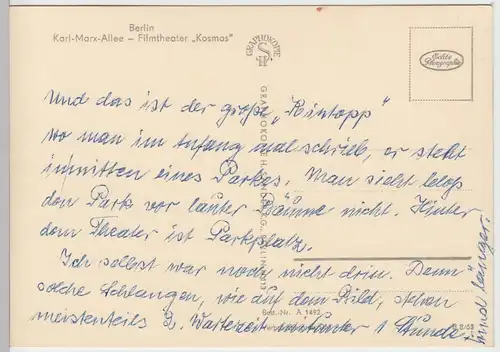 Berlin
Karl-Marx-Allee – Filmtheater „Kosmos"
GRAPHOKOPIE
H S
Echte Fotographie
Und das ist der große „Kintopp"
wo man im Anfang mal schrieb, er steht
inmitten eines Parkes. Man sieht blos
den Park vor lauter Bäume nicht. Hinter
dem Theater ist Parkplatz.
Ich selbst war noch nicht drin. Denn
solche Schlangen, wie auf dem Bild, stehen
meistenteils z. Wartezeit mitunter 1 Stunde
und länger!
Best.-Nr. A 1492